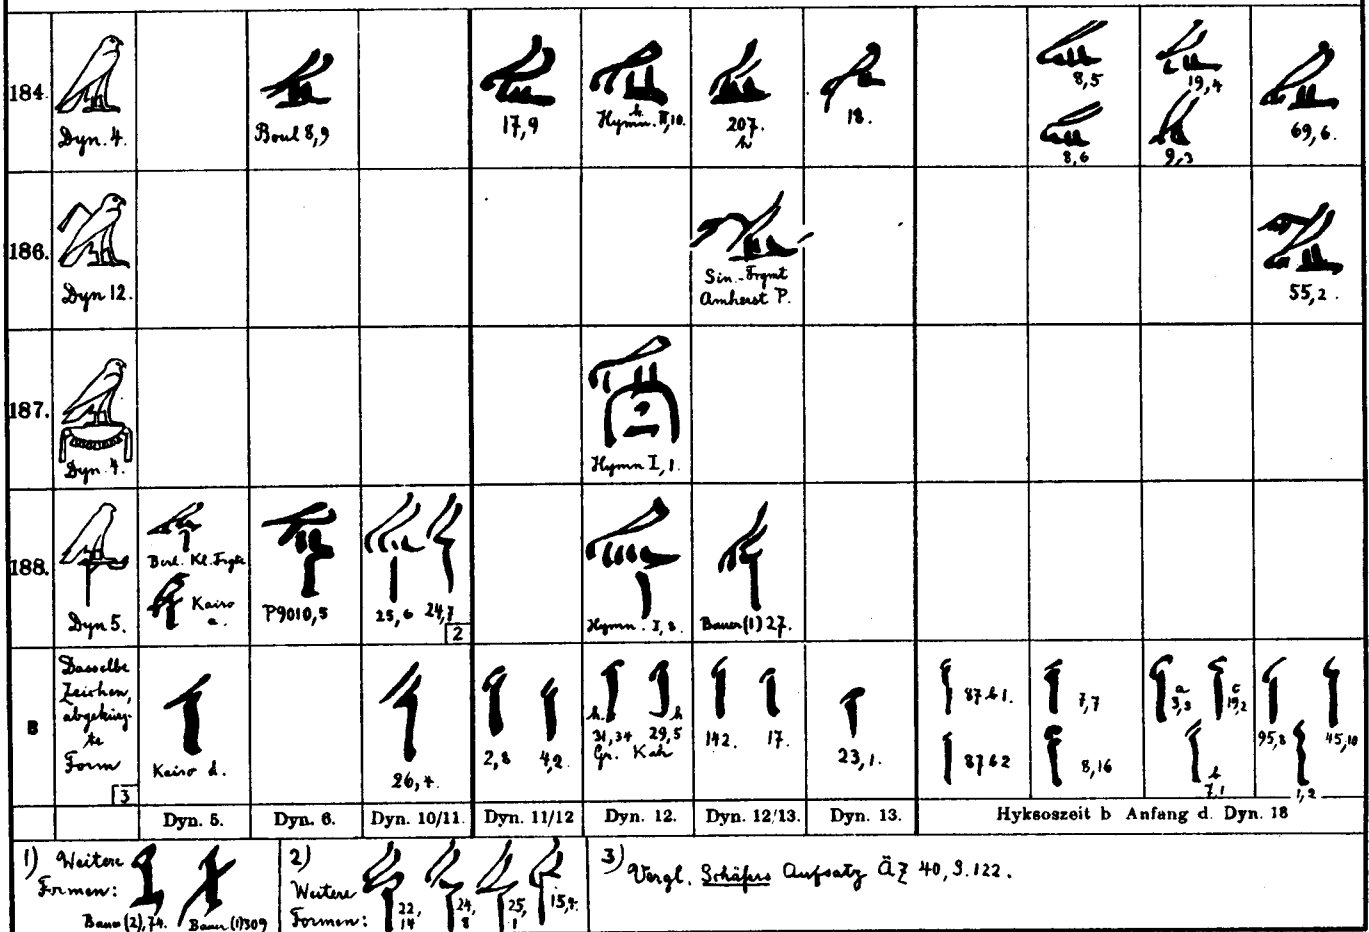 184.
Dyn. 4.
Boul 8,9
17,9
Hymn. II,10.
h
207.
h
18.
8,5
8,6
19,4
9,3
69,6.
186.
Dyn 12.
Sin.-Frgmt
Amherst P.
55,2.
187.
Dyn. 4.
Hymn I, 1.
188.
Dyn 5.
Berl. Kl. Frgte
Kairo
a.
P9010,5
25,6 24,7
2
Hymn. I, 3.
Bauer (1) 27.
B
Dasselbe
Zeichen,
abgekürz-
te
Form
3
Kairo d.
26,4.
2,8 4,2.
h. h
31,34 29,5
Gr. Kah
142. 17.
23,1.
87 b 1.
87 b 2
7,7
8,16
a
3,3
c
19,2
b
7,1
95,8 45,10
1,2
Dyn. 5. Dyn. 6. Dyn. 10/11. Dyn. 11/12 Dyn. 12. Dyn. 12/13. Dyn. 13. Hyksoszeit b Anfang d. Dyn. 18
1) Weitere
Formen:
Bauer (2), 74. Bauer (1) 309
2)
Weitere
Formen:
22,
14
24,
8
25,
1
15,4.
3) Vergl. Schäfers Aufsatz ÄZ 40, S. 122.